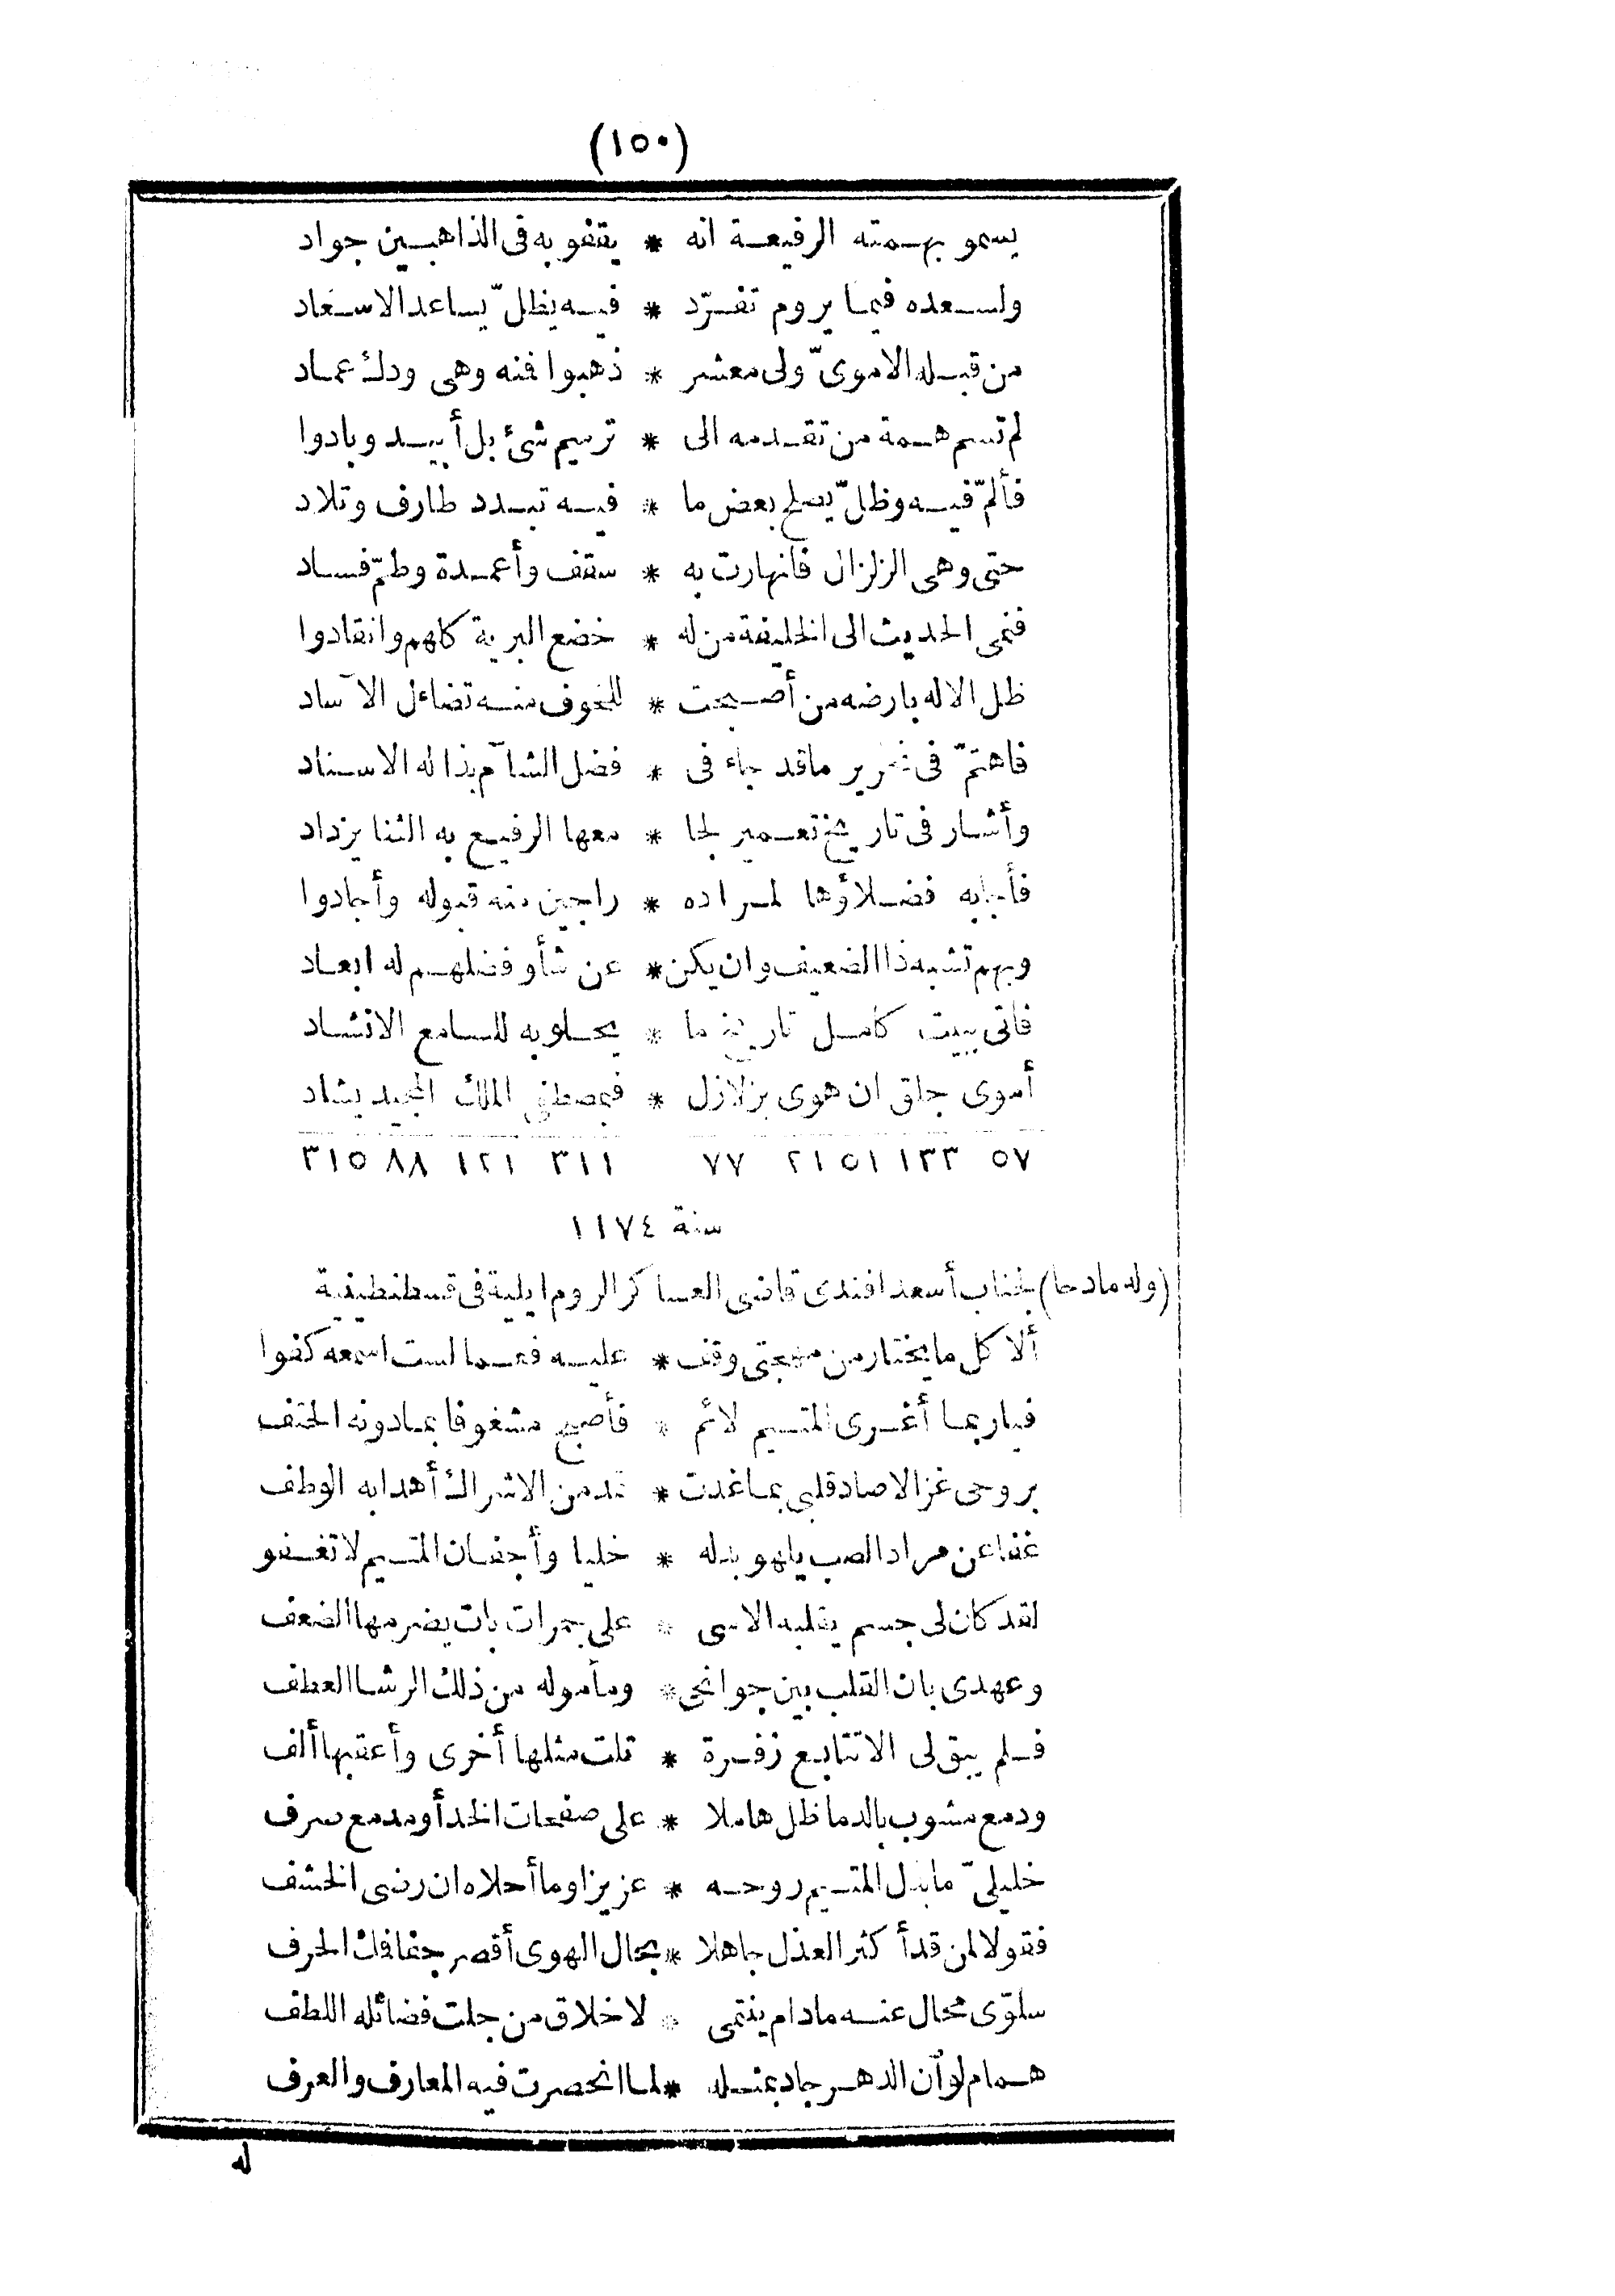 (١٥٠)
يسمو بهمته الرفيعة انه * يقفو به فى الذاهبين جواد
ولسعده فيما يروم تفرّد * فيه يظلّ يساعد الاسعاد
من قبله الاموىّ ولى معشر * ذهبوا فنه وهى ودك عماد
لم تسم همة من تقدمه الى * ترميم شئ بل أبيد وبادوا
فألمّ فيه وظلّ يصلح بعض ما * فيه تبدد طارف وتلاد
حتى وهى الزلزال فانهارت به * سقف وأعمدة وطمّ فساد
فنمى الحديث الى الخليفة من له * خضع البرية كلهم وانقادوا
ظل الاله بارضه من أصبحت * للخوف منه تضاءل الآساد
فاهتمّ فى تحرير ماقد جاء فى * فضل الشآم بذا له الاسناد
وأشار فى تاريخ تعمير لجا * معها الرفيع به الثنا يزداد
فأجابه فضلاؤها لمراده * راجين منه قبوله وأجادوا
وبهم تشبه ذا الضعيف وان يكن * عن شأو فضلهم له ابعاد
فاتى ببيت كامل تاريخ ما * يحلو به للسامع الانشاد
أموى جلق ان هوى بزلازل * فبمصطفى الملك المجيد يشاد
٥٧ ١٣٣ ٥١ ٢١ ٧٧ ٣١١ ١٢١ ٨٨ ٣١٥
سنة ١١٧٤
(وله مادحا) لجناب أسعد افندى قاضى العساكر الروم ايلية فى قسطنطينية
ألا كل ما يختار من مهجتى وقف * عليه فعما لست اسمعه كفوا
فيا ربما أغرى المتيم لائم * فأصبح مشغوفا بما دونه الحتف
بروحى غزالا صاد قلبى بما غدت * تمد من الاشراك أهدابه الوطف
غفا عن مراد الصب يلهو بدله * خليا وأجفان المتيم لا تغفو
لقد كان لى جسم يقلبه الاسى * على جمرات بات يضرمها الضعف
وعهدى بان القلب بين جوانحى * ومأموله من ذلك الرشا العطف
فلم يبق لى الا تتابع زفرة * تلت مثلها أخرى وأعقبها ألف
ودمع مشوب بالدما ظل هاملا * على صفحات الخد أومدمع صرف
خليلىّ ما بذل المتيم روحه * عزيزا وما أحلاه ان رضى الخشف
فقولا لمن قد أكثر العذل جاهلا * بحال الهوى أقصر جفا فك الحرف
سلوّى محال عنه مادام ينتمى * لاخلاق من جلت فضائله اللطف
همام لو أن الدهر جاد بمثله * لما انحصرت فيه المعارف والعرف
له